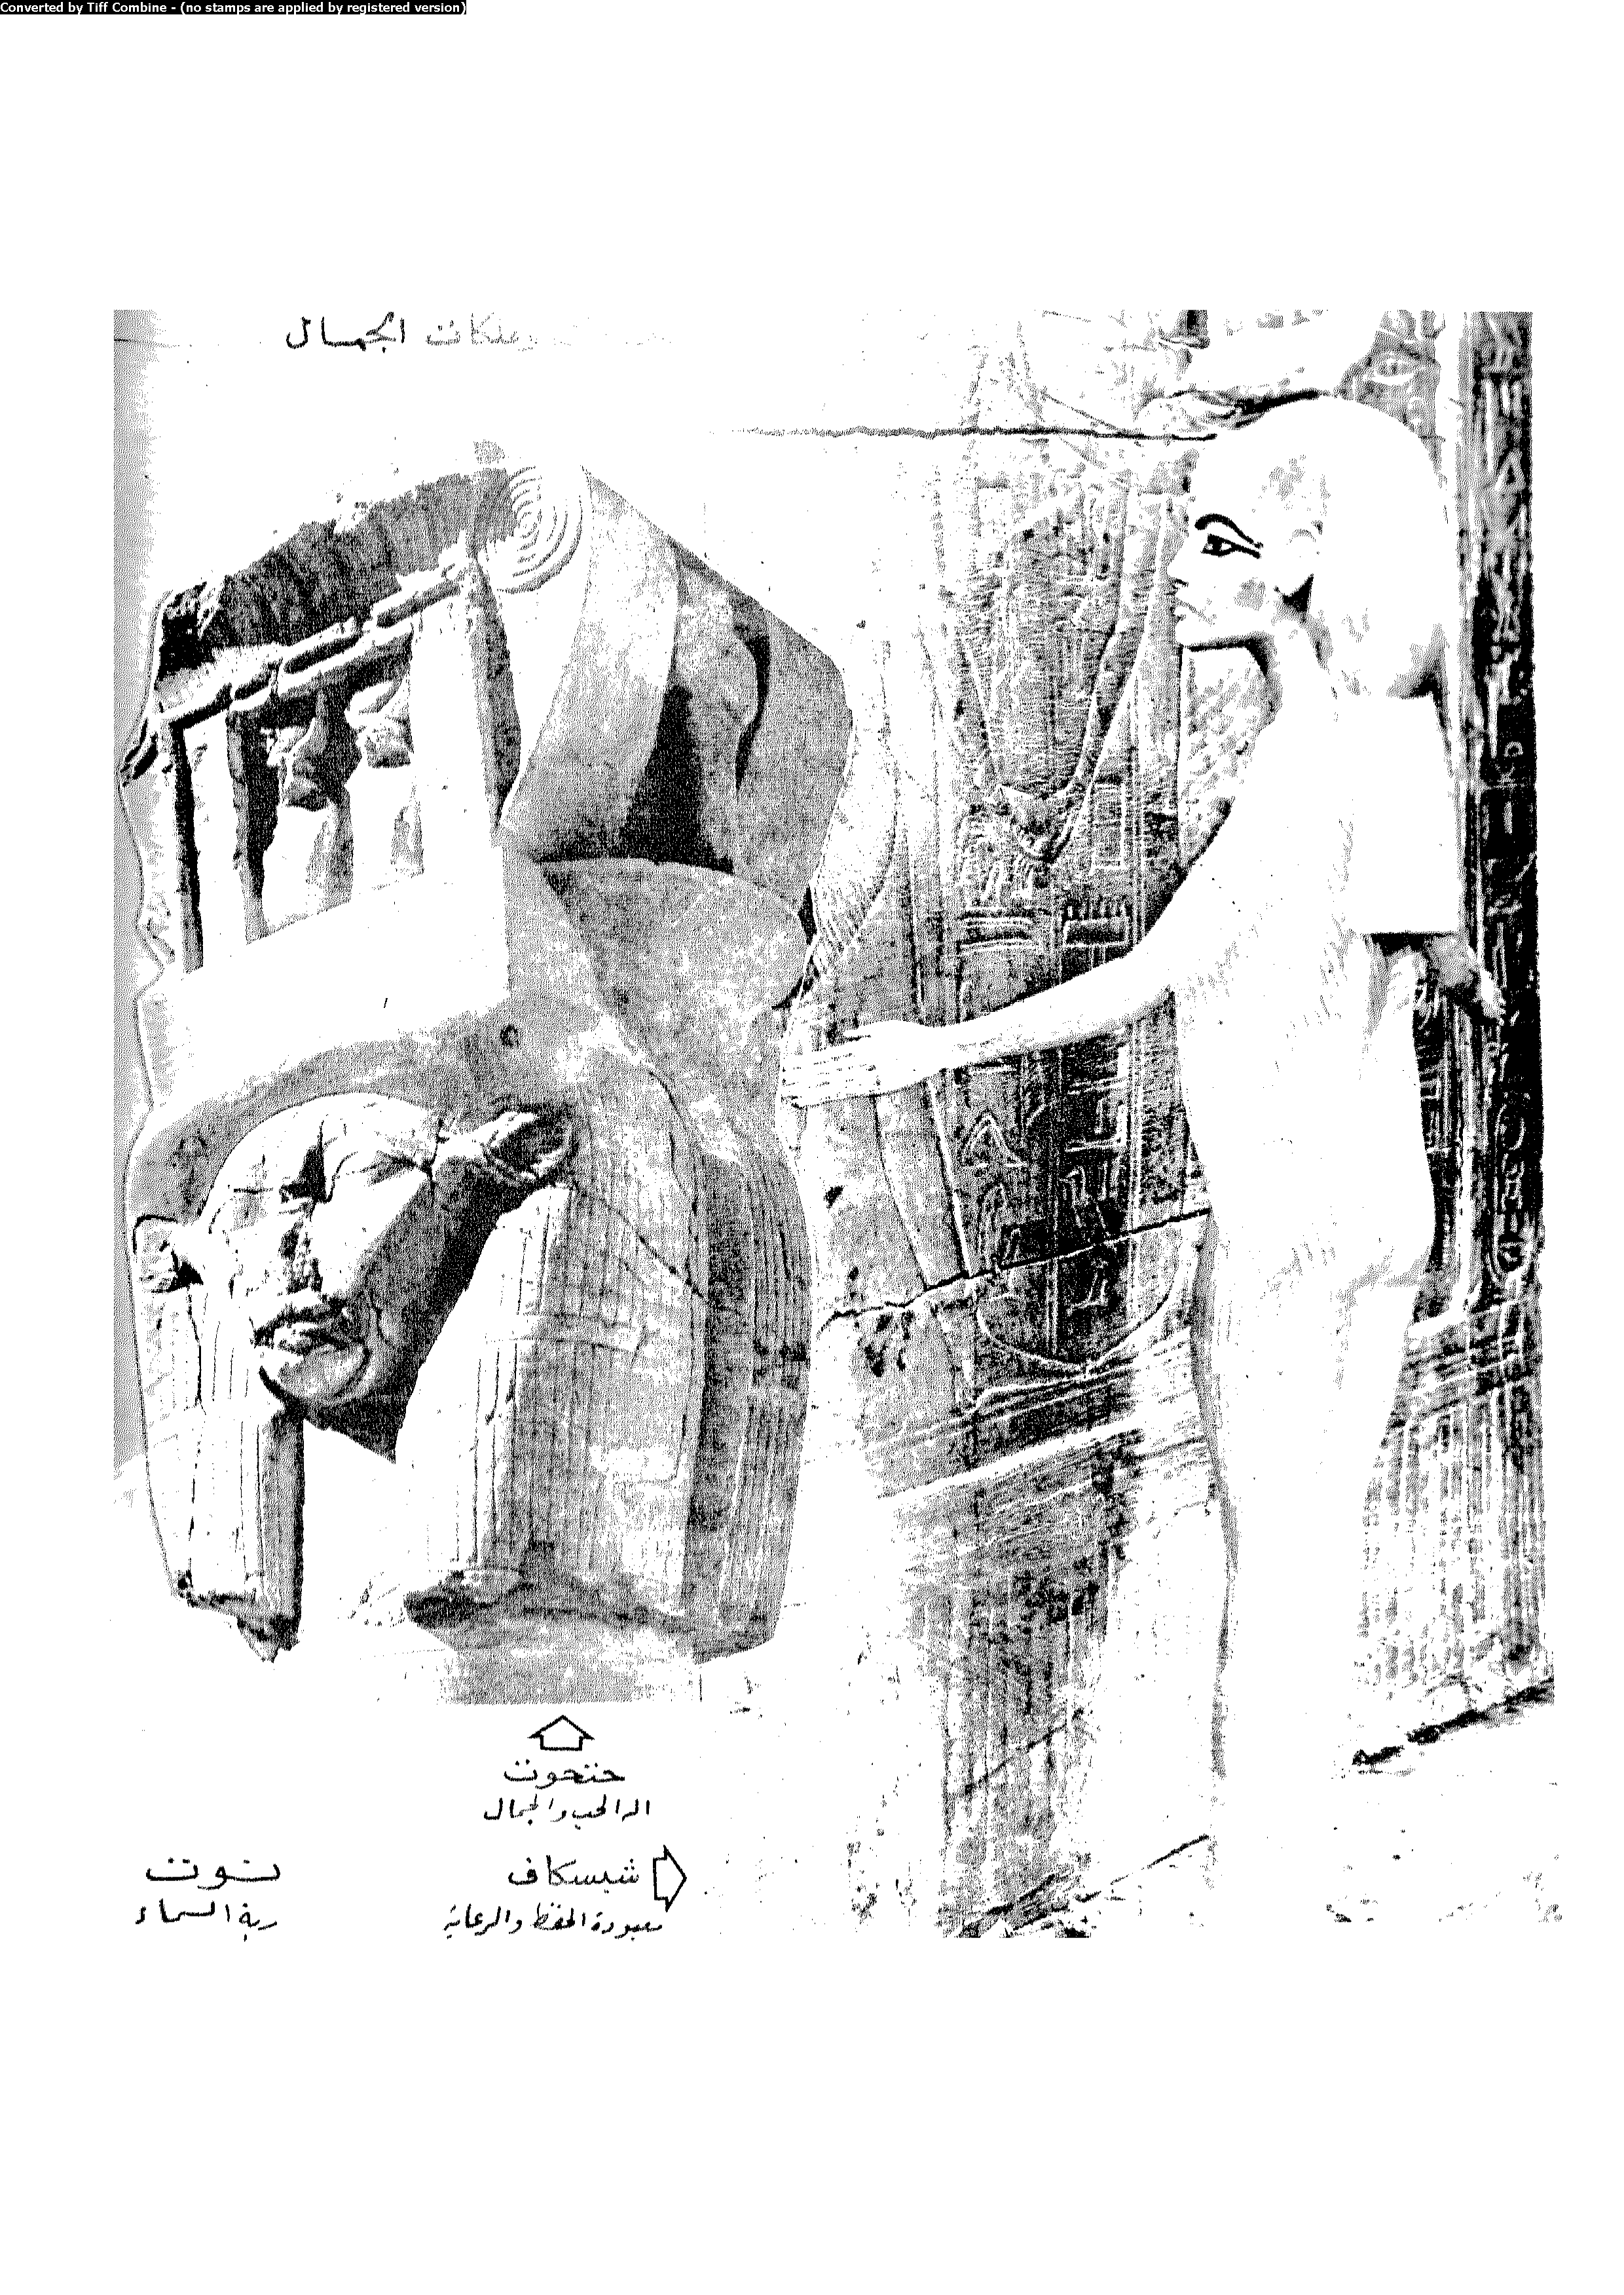 Converted by Tiff Combine - (no stamps are applied by registered version)
وملكات الجمال
حتحوت
اله الحب والجمال
شبسكاف
معبودة الحفظ والرعاية
نوت
ربة السماء